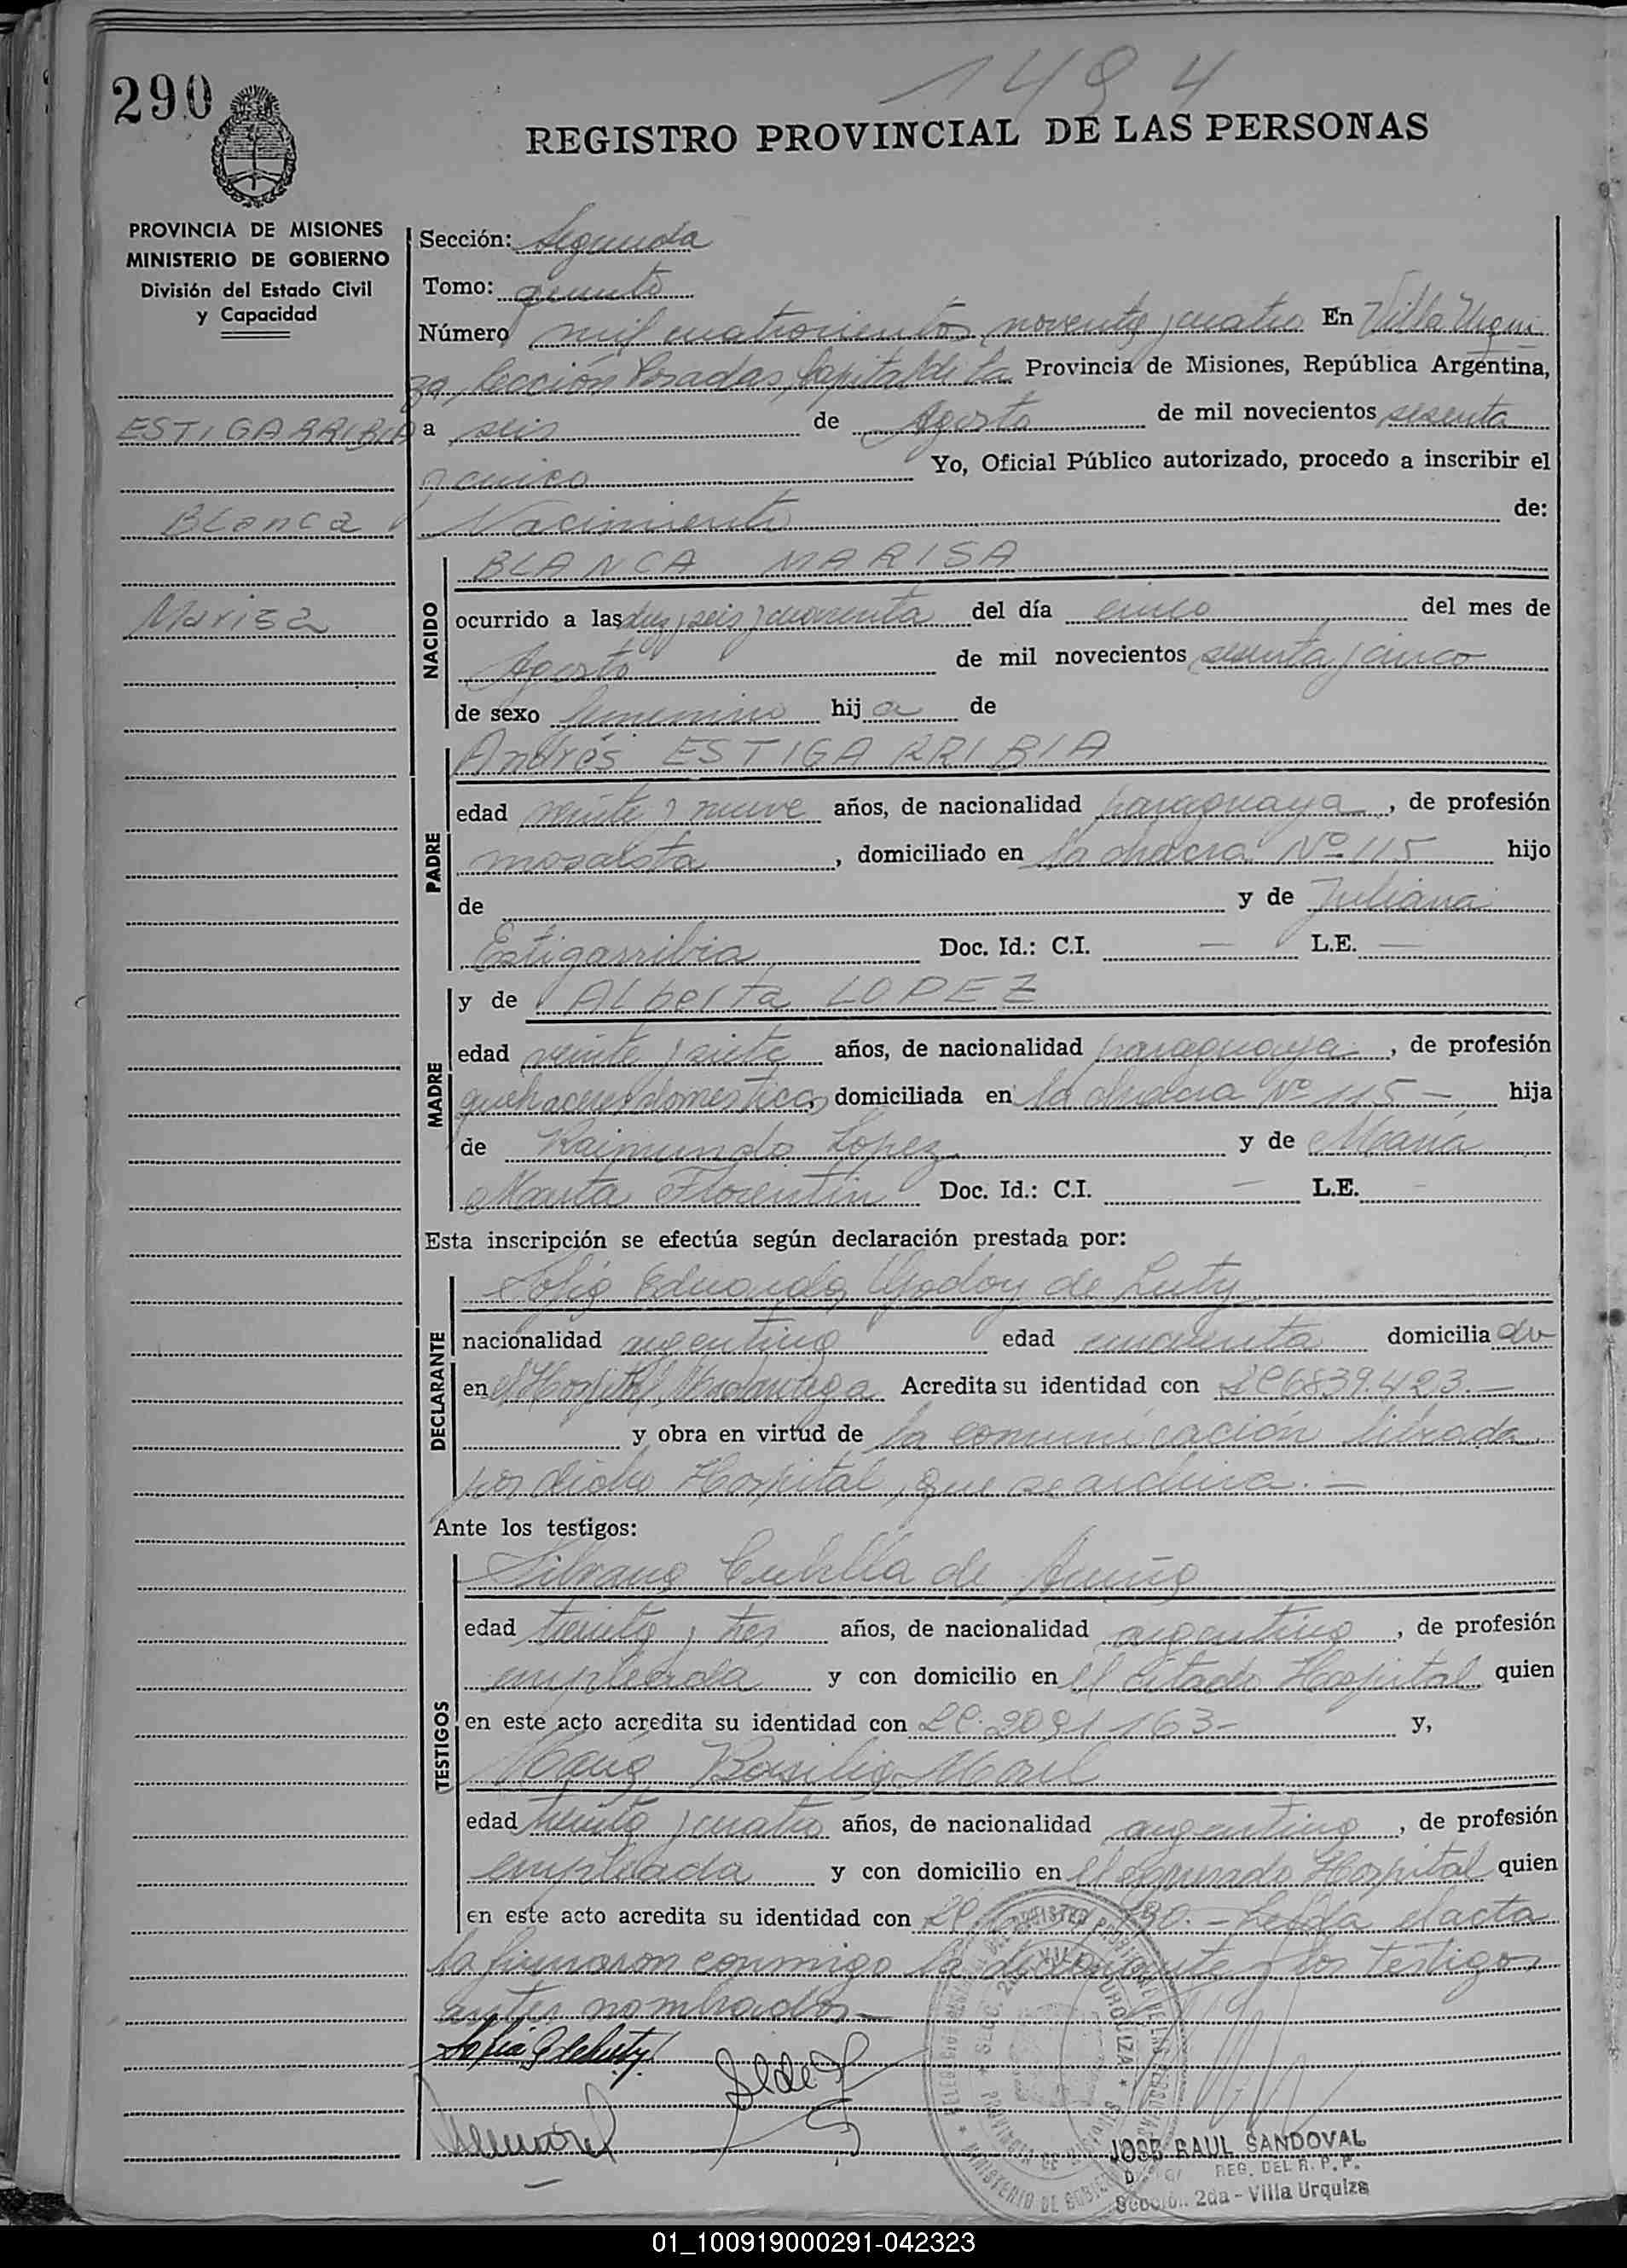 1494
290
REGISTRO PROVINCIAL DE LAS PERSONAS
PROVINCIA DE MISIONES
MINISTERIO DE GOBIERNO
División del Estado Civil
y Capacidad
ESTIGARRIBIA
Blanca
Marisa
Sección: Segunda
Tomo: quinto
Número mil cuatrocientos noventa y cuatro En Villa Urqui
za, Sección Posadas, Capital de la Provincia de Misiones, República Argentina,
a seis de Agosto de mil novecientos sesenta
y cinco Yo, Oficial Público autorizado, procedo a inscribir el
Nacimiento de:
NACIDO
BLANCA MARISA
ocurrido a las diez y seis y cuarenta del día cinco del mes de
Agosto de mil novecientos sesenta y cinco
de sexo femenino hija de
PADRE
Andrés ESTIGARRIBIA
edad veinte y nueve años, de nacionalidad paraguaya, de profesión
mosaista, domiciliado en la chacra Nº 115 hijo
de y de Juliana
Estigarribia Doc. Id.: C.I. — L.E. —
MADRE
y de Alberta LOPEZ
edad veinte y siete años, de nacionalidad paraguaya, de profesión
quehaceres domesticos, domiciliada en la chacra Nº 115 — hija
de Raimundo Lopez y de María
Marta Florentín Doc. Id.: C.I. — L.E. -
Esta inscripción se efectúa según declaración prestada por:
DECLARANTE
Sofía Eduarda Godoy de Luty
nacionalidad argentina edad cincuenta domiciliada
en el Hospital Madariaga Acredita su identidad con LC6839.423.—
y obra en virtud de la comunicación librada
por dicho Hospital, que se archiva.—
Ante los testigos:
TESTIGOS
Silvana Cubilla de
edad treinta y tres años, de nacionalidad argentina, de profesión
empleada y con domicilio en el citado Hospital quien
en este acto acredita su identidad con LC. 2091163- y,
Basilia
edad treinta y cuatro años, de nacionalidad argentina, de profesión
empleada y con domicilio en el expresado Hospital quien
en este acto acredita su identidad con LC 130.- Leída el acta
la firmaron conmigo la declarante y los testigos
antes nombrados—
JOSE RAUL SANDOVAL
REG. DEL R. P. P.
Sección 2da - Villa Urquiza
01_100919000291-042323